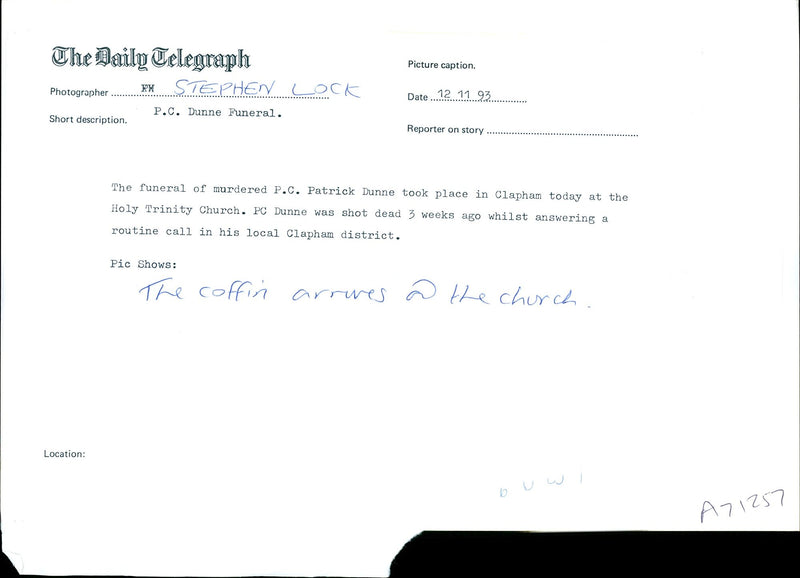 The Daily Telegraph
Picture caption.
Photographer ........ FM STEPHEN LOCK
Date ...12 11 93............
Short description. P.C. Dunne Funeral.
Reporter on story ................................................
The funeral of murdered P.C. Patrick Dunne took place in Clapham today at the
Holy Trinity Church. PC Dunne was shot dead 3 weeks ago whilst answering a
routine call in his local Clapham district.
Pic Shows:
The coffin arrives @ the church.
Location:
A71257